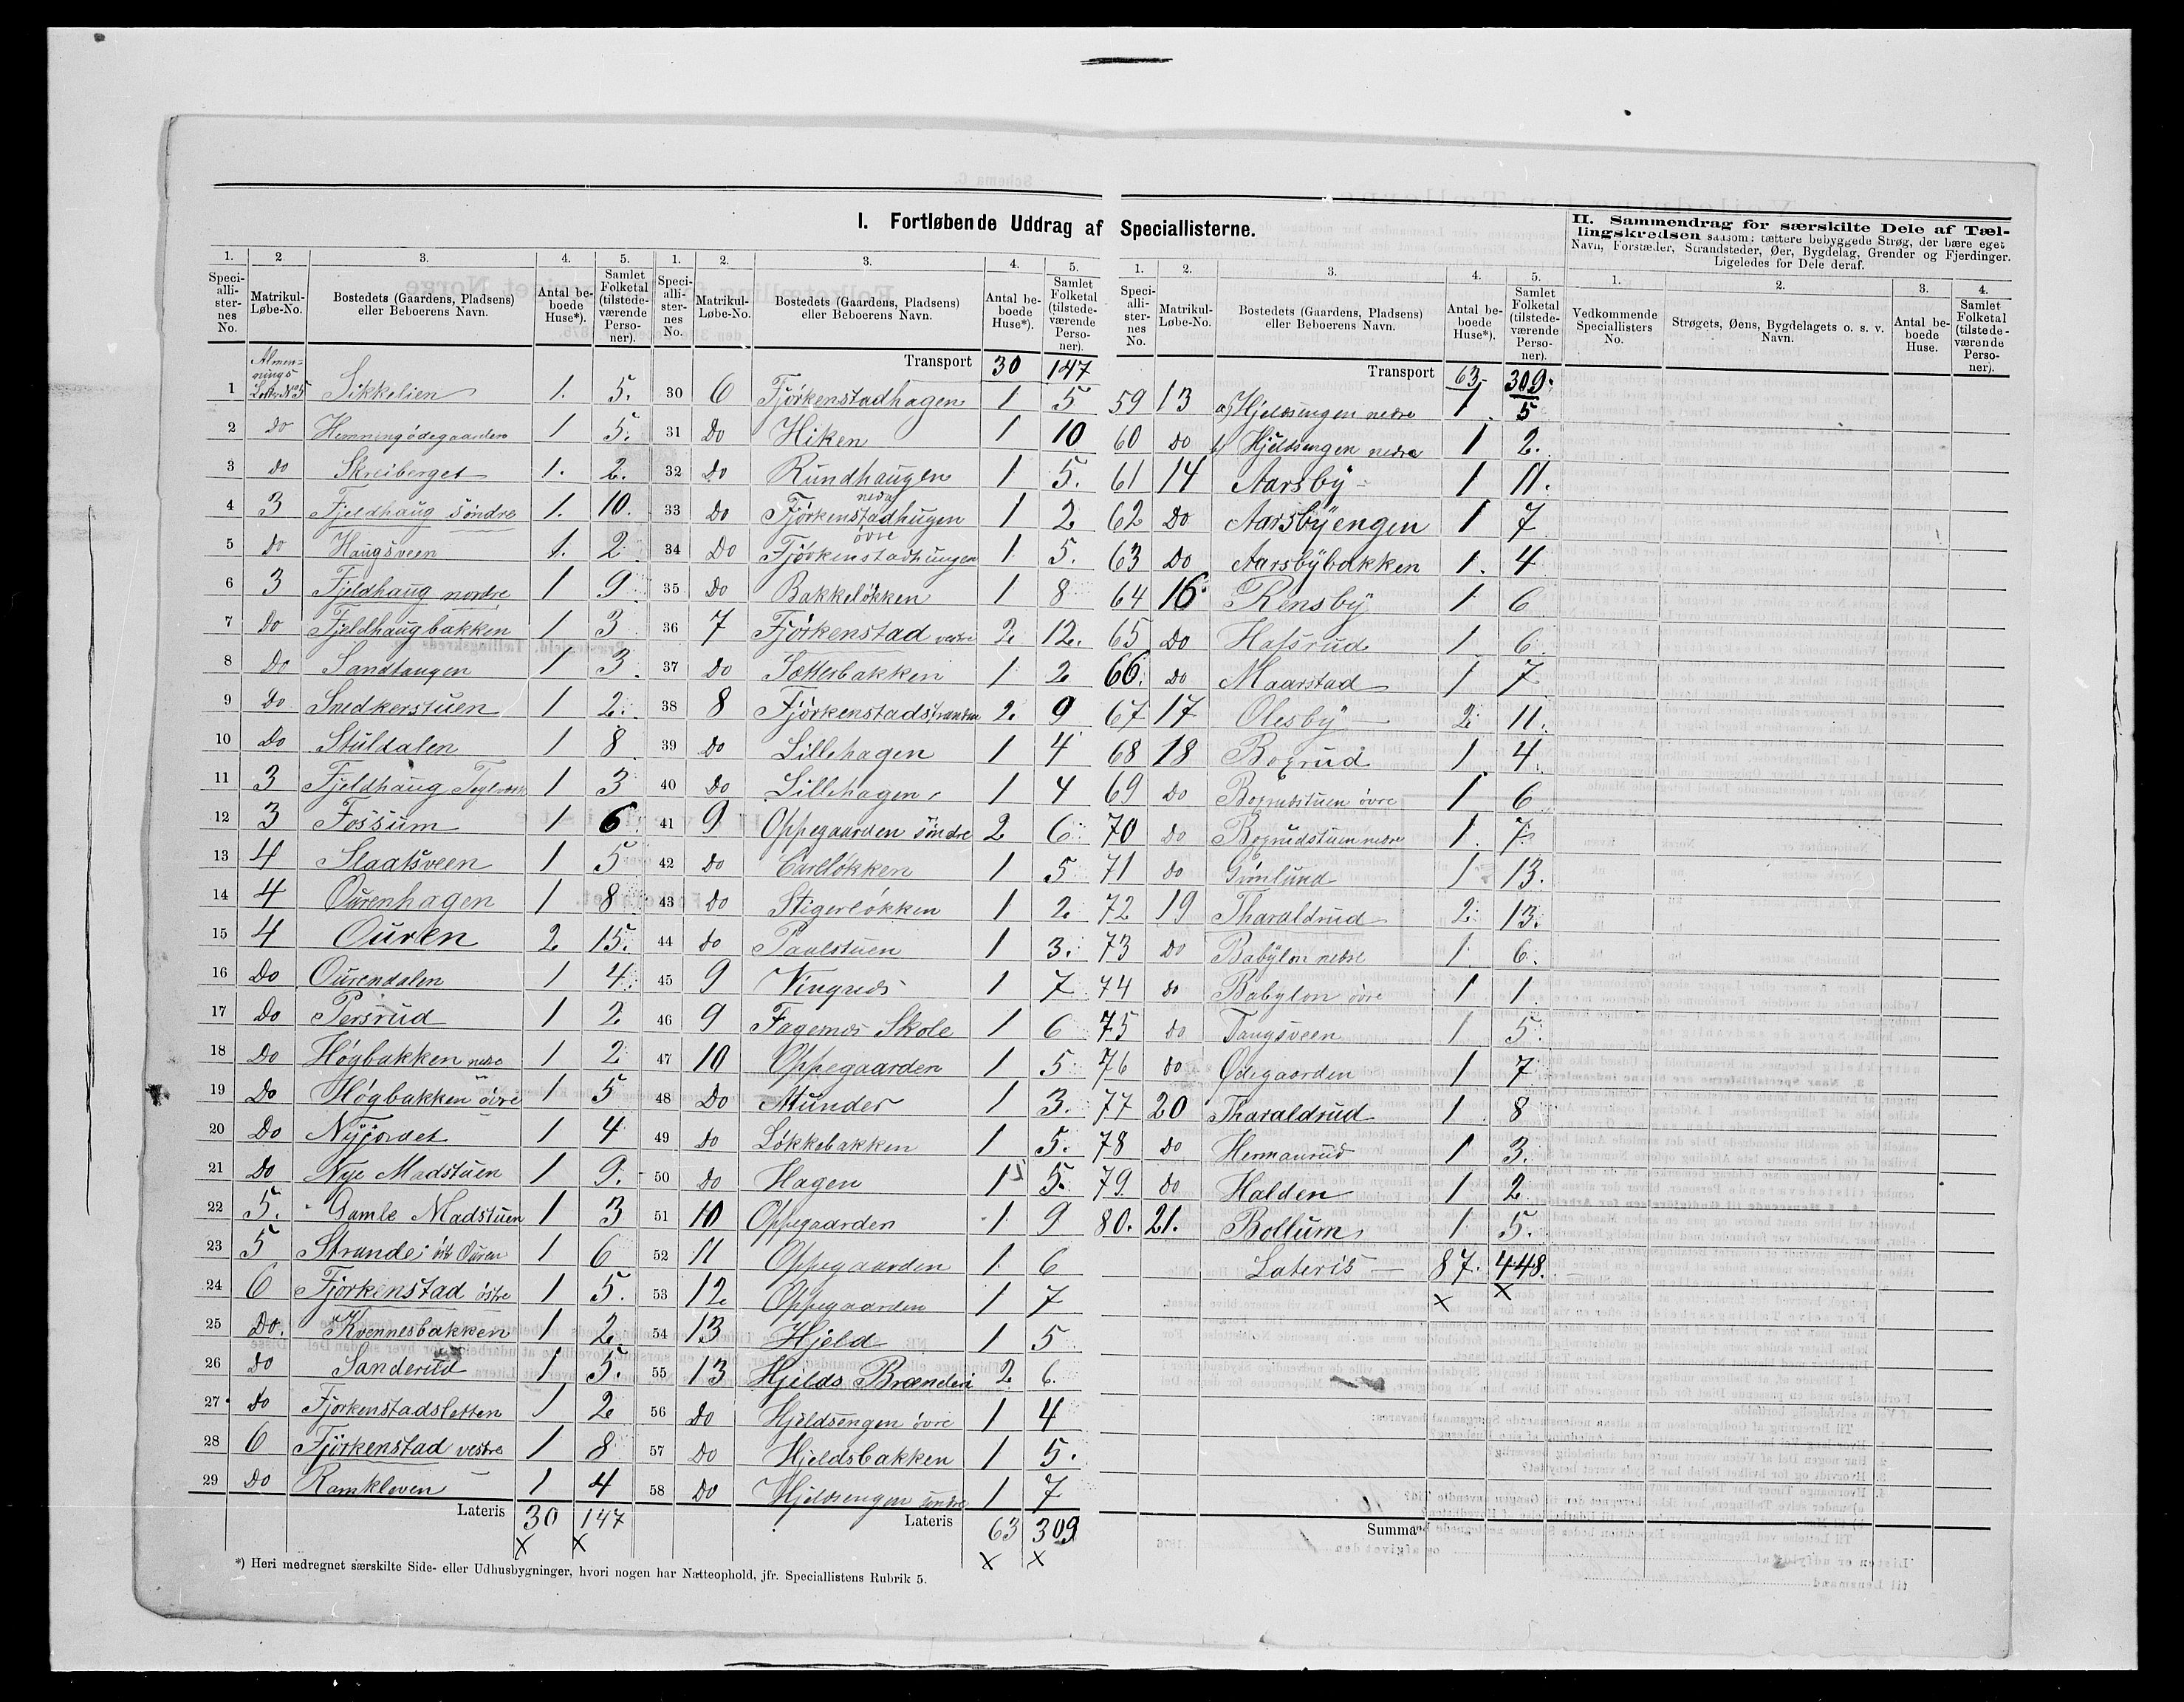 I. Fortløbende Uddrag af Speciallisterne.
II. Sammendrag for særskilte Dele af Tællingskredsen saasom: tættere bebyggede Strøg, der bære eget Navn, Forstæder, Strandsteder, Øer, Bygdelag, Grender og Fjerdinger. Ligeledes for Dele deraf.
1. 2 3. 4. 5.
Speciallisternes No. Matrikul-Løbe-No. Bostedets (Gaardens, Pladsens) eller Beboerens Navn. Antal beboede Huse*). Samlet Folketal (tilstedeværende Personer).
1 Almennings Løbe No 5 Sikkelien 1. 5.
2 Do Henningödegaarden 1 5.
3 do Skreiberget 1. 2.
4 3 Fjeldhaug söndre 1. 10.
5 do Haugsveen 1. 2
6 3 Fjeldhaug nordre 1 9
7 Do Fjeldhaugbakken 1 3
8 Do Sandtangen 1 3.
9 Do Snedkerstuen 1 2.
10 Do Stuldalen 1 8
11 3 Fjeldhaug Teglværk 1 3
12 3 Fossum 1 6
13 4 Slaatsveen 1 5
14 4 Ourenhagen 1 8
15 4 Ouren 2 15.
16 Do Ourendalen 1 4.
17 Do Persrud 1 2
18 Do Høgbakken nedre 1 2
19 Do Høgbakken övre 1 5
20 Do Nyjordet 1 4
21 Do Nye Madstuen 1 9.
22 5. Gamle Madstuen 1 3
23 5 Strande Ouren 1 6
24 6 Fjörkenstad östre 1 5.
25 Do. Kvennesbakken 1 2
26 do Sanderud 1 5.
27 do Fjörkenstadsletten 1 2
28 6 Fjörkenstad vestre 1 8
29 Do Ramkleven 1 4
Lateris 30 147
x x
1. 2. 3. 4. 5.
Speciallisternes No. Matrikul-Løbe-No. Bostedets (Gaardens, Pladsens) eller Beboerens Navn. Antal beboede Huse*). Samlet Folketal (tilstedeværende Personer).
Transport 30 147
30 6 Fjörkenstadhagen 1 5
31 Do Hiken 1 10
32 Do Rundhaugen 1 5.
33 Do Fjörkenstadhugen neda 1 2
34 Do Fjörkenstadhaugen övre 1 5.
35 Do Bakkelökken 1 8
36 7 Fjörkenstad vestre 2. 12.
37 Do Sætterbakken 1 2
38 8 Fjörkenstadstranden 2. 9
39 Do Lillehagen 1 4
40 Do Lillehagen 1 4
41 9 Oppegaarden söndre 2 6
42 do Carllökken 1 5
43 Do Stigerlökken 1 2
44 do Paulstuen 1 3.
45 9 Vingreds 1 7
46 9 Fagernes Skole 1 6
47 10 Oppegaarden 1 5
48 Do Munder 1 3.
49 do Løkkebakken 1 5.
50 do Hagen 1 5.
51 10 Oppegaarden 1 9
52 11 Oppegaarden 1 6
53 12 Oppegaarden 1 7
54 13 Hjeld 1 5
55 13 Hjelds Brænderi 2 6.
56 do Hjeldsengen övre 1 4
57 Do Hjeldsbakken 1 5.
58 Do Hjeldsengen söndre 1 7
Lateris 63 309
x x
1. 2. 3. 4. 5.
Speciallisternes No. Matrikul-Løbe-No. Bostedets (Gaardens, Pladsens) eller Beboerens Navn. Antal beboede Huse*). Samlet Folketal (tilstedeværende Personer).
Transport 63 309.
59 13 a) Hjeldsengen nedre 1 5
60 do b) Hjeldsengen nedre 1 2.
61 14 Aarsby 1 11.
62 Do Aarsbyengen 1 7
63 Do Aarsbybakken 1. 4
64 16 Rensby 1 6
65 Do Hafsrud 1 6
66. do Maarstad 1 7
67 17 Olesby 2 11.
68 18 Bogrud 1 4.
69 do Bogrudstuen övre 1 6
70 do Bogrudstuen nedre 1. 7.
71 do Grönlund 1 13.
72 19 Tharaldrud 2. 13.
73 do Babylon nedre 1. 6.
74 do Babylon övre 1 1
75 do Taugsveen 1 5.
76 do Ødegaarden 1 7
77 20 Tharaldrud 1. 8
78 do Hermanrud 1 3.
79. do Halden 1 2
80. 21. Bollum 1 5.
Lateris 87. 448.
x x
Summa
1. 2. 3. 4.
Vedkommende Speciallisters No. Strøgets, Øens, Bygdelagets o. s. v. Navn. Antal beboede Huse. Samlet Folketal (tilstedeværende Personer).
*) Heri medregnet særskilte Side- eller Udhusbygninger, hvori nogen har Natteophold, jfr. Speciallistens Rubrik 5.